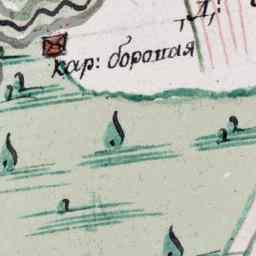 Д:
кар: бороная